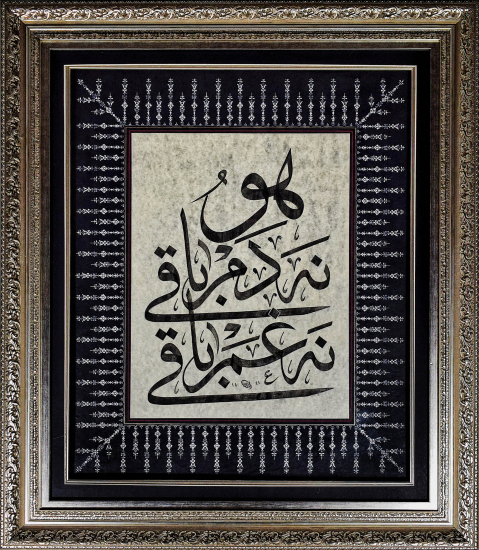 هو
نه دم باقى
نه غم باقى